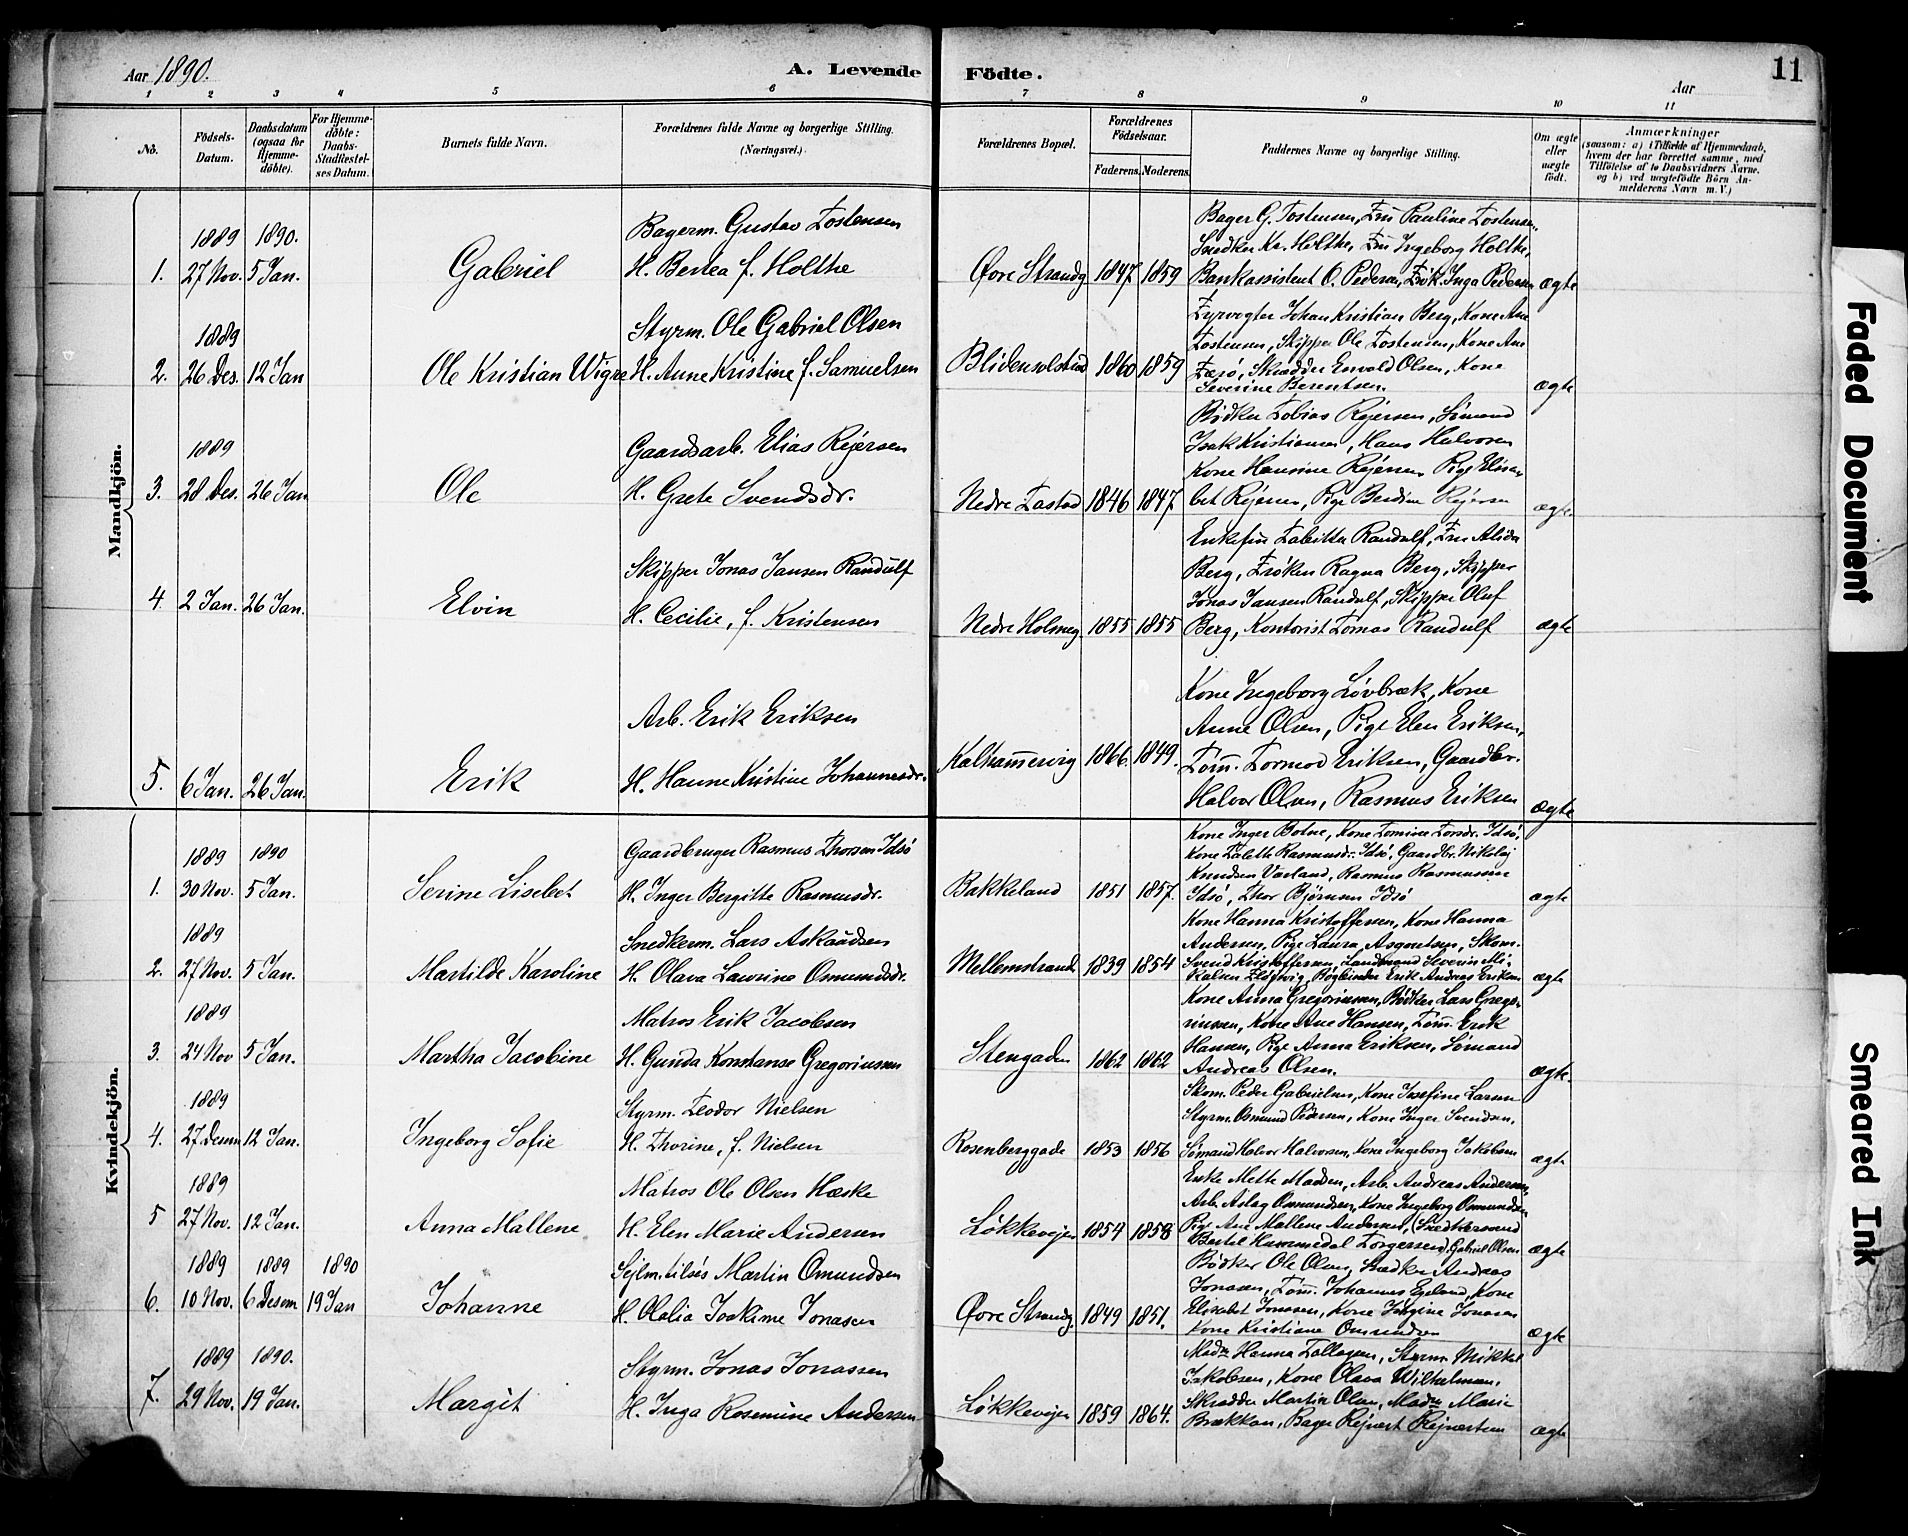 Aar 1890.
A. Levende Födte.
Aar
11
1 2 3 4 5 6 7 8 9 10 11
No.
Födsels-Datum.
Daabsdatum (ogsaa for Hjemme-döbte).
For Hjemme-döbte: Daabs-Stadfæstel-ses Datum.
Barnets fulde Navn.
Forældrenes fulde Navne og borgerlige Stilling. (Næringsvei.)
Forældrenes Bopæl.
Forældrenes Födselsaar.
Faderens. Moderens.
Faddernes Navne og borgerlige Stilling.
Om ægte eller uægte födt.
Anmærkninger
(saasom: a) i Tilfælde af Hjemmedaab, hvem der har forrettet samme, med Tilföielse af to Daabsvidners Navne, og b) ved uægtefödte Börn An-melderens Navn m. V.)
Mandkjön.
1889 1890.
1. 27 Nov. 5 Jan. Gabriel
Bagerm. Gustav Tostensen
H. Bertea f. Holthe
Øvre Strandg 1847 1859
Bager G. Tostensen, Fru Pauline Tostensen,
Snedker Kr. Holthe, Fru Ingeborg Holthe,
Bankassistent O. Pedersen, Frøk. Inga Pedersen
ægte
1889
2. 26 Des. 12 Jan Ole Kristian Wigre
Styrm. Ole Gabriel Olsen
H. Anne Kristine f. Samuelsen
Blidensolstad 1860 1859
Fyrvogter Johan Kristian Berg, Kone Ane
Tostensen, Skipper Ole Tostensen, Kone Ane
Skrædder Envald Olsen, Kone
Severine Berentsen.
ægte
1889
3. 28 Des. 26 Jan Ole
Gaardsarb. Elias Rejersen
H. Grete Svendsdr.
Nedre Tastad 1846 1847
Bødker Tobias Rejersen, Sømand
Isak Kristiansen, Hans Halvorsen
Kone Hansine Rejersen Pige Elisa-
bet Rejersen, Pige Berdine Rejersen
ægte.
4. 2 Jan. 26 Jan. Elvin
Skipper Jonas Jansen Randulf
H. Cecilie, f. Kristensen
Nedre Holmeg. 1855 1855
Enkefru Tabitha Randulf, Fru Alida
Berg, Frøken Ragna Berg, Skipper
Jonas Jansen Randulf, Skipper Oluf
Berg, Kontorist Tomas Randulf
ægte
5. 6 Jan. 26 Jan. Erik
Arb. Erik Eriksen
H. Hanne Kristine Johannesdr.
Kalhammervig 1866. 1849.
Kone Ingeborg Løvbræk, Kone
Anne Olsen, Pige Elen Eriksen,
Tøm. Tormod Eriksen, Gaardbr.
Halvor Olsen, Rasmus Eriksen
ægte
Kvindekjön.
1889 1890
1. 30 Nov. 5 Jan. Serine Lisebet
Gaardbruger Rasmus Thorsen Idsø
H. Inger Bergitte Rasmusdr.
Bakkeland 1851 1857.
Kone Inger Botne, Kone Tomine Torsdr. Idsø,
Kone Talette Rasmusdr. Idsø, Gaardbr. Nikolaj
Knudsen Varland, Rasmus Rasmussen
Idsø, Thor Bjørnsen Idsø
ægte
1889
2. 27 Nov. 5 Jan. Martilde Karoline
Snedkerm. Lars Askaadsen
H. Olava Lawrine Omundsdr.
Mellemstrand 1839 1854
Kone Hanna Kristoffersen, Kone Hanna
Andersen, Pige Laura Asgautsen, Skom.
Svend Kristoffersen, Landmand Severin Mi-
kalsen, Bogbinder Erik Andreas Eriksen
ægte
1889
3. 24 Nov 5 Jan. Martha Jacobine
Matros Erik Jacobsen
H. Gunda Konstanse Gregoriussen
Stengaden 1862 1862
Kone Anna Gregoriussen, Bødker Lars Grego-
riussen, Kone Ane Hansen, Tøm. Erik
Hansen, Pige Anna Eriksen, Sømand
Andreas Olsen.
ægte.
1889
4. 27 Desem 12 Jan. Ingeborg Sofie
Styrm. Teodor Nielsen
H. Thorine, f. Nielsen
Rosenberggade 1853 1856
Skom. Peder Gabrielsen, Kone Josefine Larsen
Styrm. Osmund Pedersen, Kone Inger Svendsen,
Sømand Halvor Halvorsen, Kone Ingeborg Jakobsen
ægte
1889
5 27 Nov. 12 Jan. Anna Mallene
Matros Ole Olsen Hæske
H. Elen Marie Andersen
Løkkevejen 1854 1858
Enke Mette Madsen, Arb. Andreas Andersen,
Arb. Aslag Osmundsen, Kone Ingeborg Osmundsen
Pige Ane Mallene Andersen, Snedkersvend
Bertel Hammedal Torgersen, Gabriel Olsen
ægte
1889 1889 1890
6. 10 Nov. 6 Desem 19 Jan Johanne
Sejlm. Martin Omundsen
H. Olalia Joakime Jonasen
Øvre Strandg. 1849 1851.
Bødker Ole Olsen, Snedker Andreas
Jonasen, Tøm. Johannes Egeland, Kone
Elisabet Jonasen, Kone Jørgine Jonasen
Kone Kristiane Omundsen
ægte
1889 1890.
7. 29 Nov. 19 Jan. Margit
Styrm. Jonas Jonassen
H. Inga Rosemine Andersen
Løkkevejen 1859 1864.
Madm Hanna Tollagsen, Styrm. Mikkel
Jakobsen, Kone Olava Wilhelmsen,
Skrædder Martin Olsen, Madm Marie
Brækkan, Bager Rejnert Rejnertsen
ægte
Faded Document
Smeared Ink